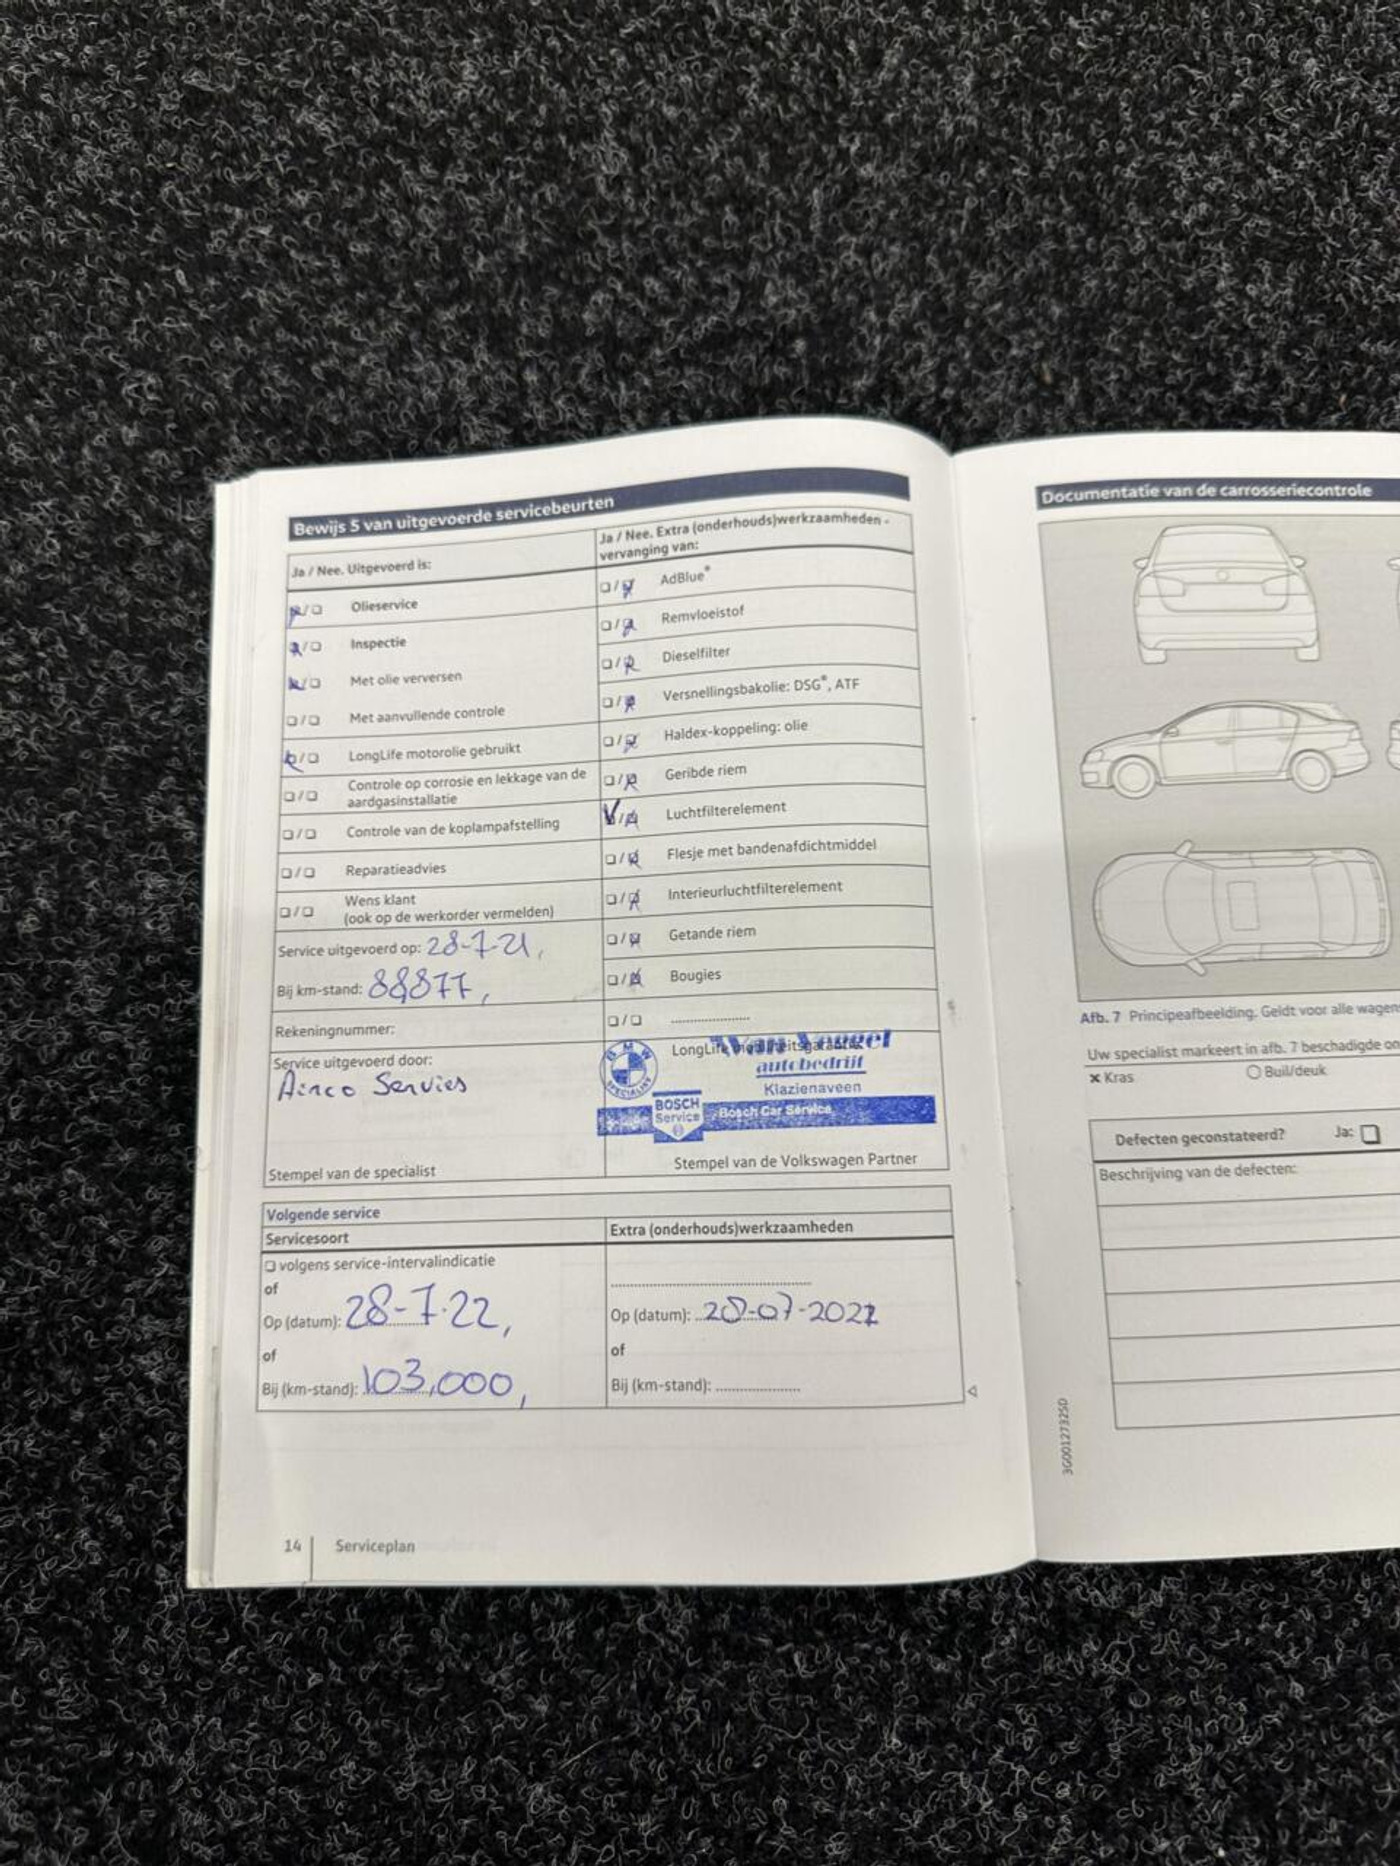 Bewijs 5 van uitgevoerde servicebeurten
Ja / Nee. Uitgevoerd is:
Olieservice
Inspectie
Met olie verversen
Met aanvullende controle
LongLife motorolie gebruikt
Controle op corrosie en lekkage van de
aardgasinstallatie
Controle van de koplampafstelling
Reparatieadvies
Wens klant
(ook op de werkorder vermelden)
Service uitgevoerd op: 28-7-21,
Bij km-stand: 88877,
Rekeningnummer:
Service uitgevoerd door:
Airco Servies
Stempel van de specialist
Ja / Nee. Extra (onderhouds)werkzaamheden -
vervanging van:
AdBlue®
Remvloeistof
Dieselfilter
Versnellingsbakolie: DSG®, ATF
Haldex-koppeling: olie
Geribde riem
Luchtfilterelement
Flesje met bandenafdichtmiddel
Interieurluchtfilterelement
Getande riem
Bougies
....................
LongLife
autobedrijf
Klazienaveen
BMW
SPECIALIST
BOSCH
Service
Bosch Car Service
Stempel van de Volkswagen Partner
Volgende service
Servicesoort
volgens service-intervalindicatie
of
Op (datum): 28-7-22,
of
Bij (km-stand): 103,000,
Extra (onderhouds)werkzaamheden
Op (datum): 28-07-2022
of
Bij (km-stand): ....................
14 Serviceplan
Documentatie van de carrosseriecontrole
Afb. 7 Principeafbeelding. Geldt voor alle wagens
Uw specialist markeert in afb. 7 beschadigde
× Kras
Buil/deuk
Defecten geconstateerd? Ja:
Beschrijving van de defecten:
3G0012732SD